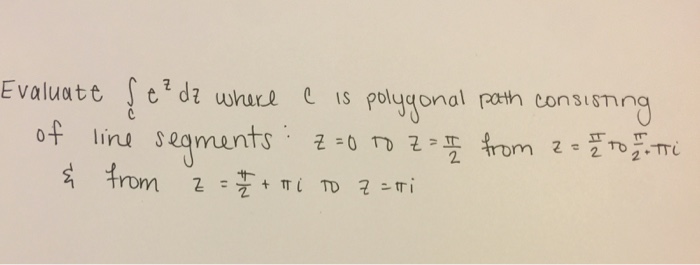 Evaluate ∫_c e^z dz where c is polygonal path consisting
of line segments: z=0 TO z=π/2 from z=π/2 TO π/2+πi
& from z=π/2+πi TO z=πi